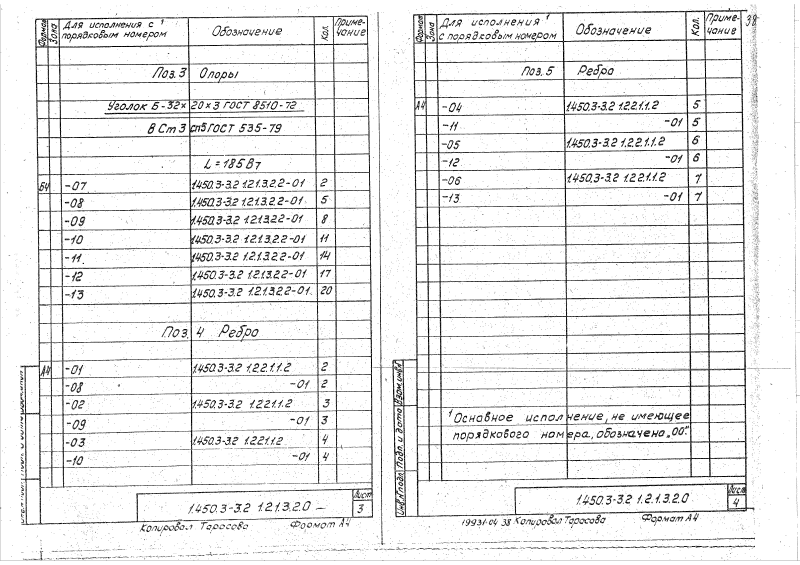 Формат Зона Для исполнения с ¹ порядковым номером Обозначение Кол. Приме-чание
Поз. 3 Опоры
Уголок Б-32х20х3 ГОСТ 8510-72
ВСт3сп5 ГОСТ 535-79
L = 185
Б4 -07 1.450.3-3.2 1.2.1.3.2.2-01 2
-08 1.450.3-3.2 1.2.1.3.2.2-01 5
-09 1.450.3-3.2 1.2.1.3.2.2-01 8
-10 1.450.3-3.2 1.2.1.3.2.2-01 11
-11 1.450.3-3.2 1.2.1.3.2.2-01 14
-12 1.450.3-3.2 1.2.1.3.2.2-01 17
-13 1.450.3-3.2 1.2.1.3.2.2-01 20
Поз. 4 Ребро
А4 -01 1.450.3-3.2 1.2.2.1.1.2 2
-08 -01 2
-02 1.450.3-3.2 1.2.2.1.1.2 3
-09 -01 3
-03 1.450.3-3.2 1.2.2.1.1.2 4
-10 -01 4
1.450.3-3.2 1.2.1.3.2.0 Лист 3
Копировал Тарасова Формат А4
38
Формат Зона Для исполнения ¹ с порядковым номером Обозначение Кол. Приме-чание
Поз. 5 Ребро
А4 -04 1.450.3-3.2 1.2.2.1.1.2 5
-11 -01 5
-05 1.450.3-3.2 1.2.2.1.1.2 6
-12 -01 6
-06 1.450.3-3.2 1.2.2.1.1.2 7
-13 -01 7
¹ Основное исполнение, не имеющее
порядкового номера, обозначено „00".
Инв.№подл. Подп. и дата Взам.инв.№
1.450.3-3.2 1.2.1.3.2.0 Лист 4
19931-04 38 Копировал Тарасова Формат А4